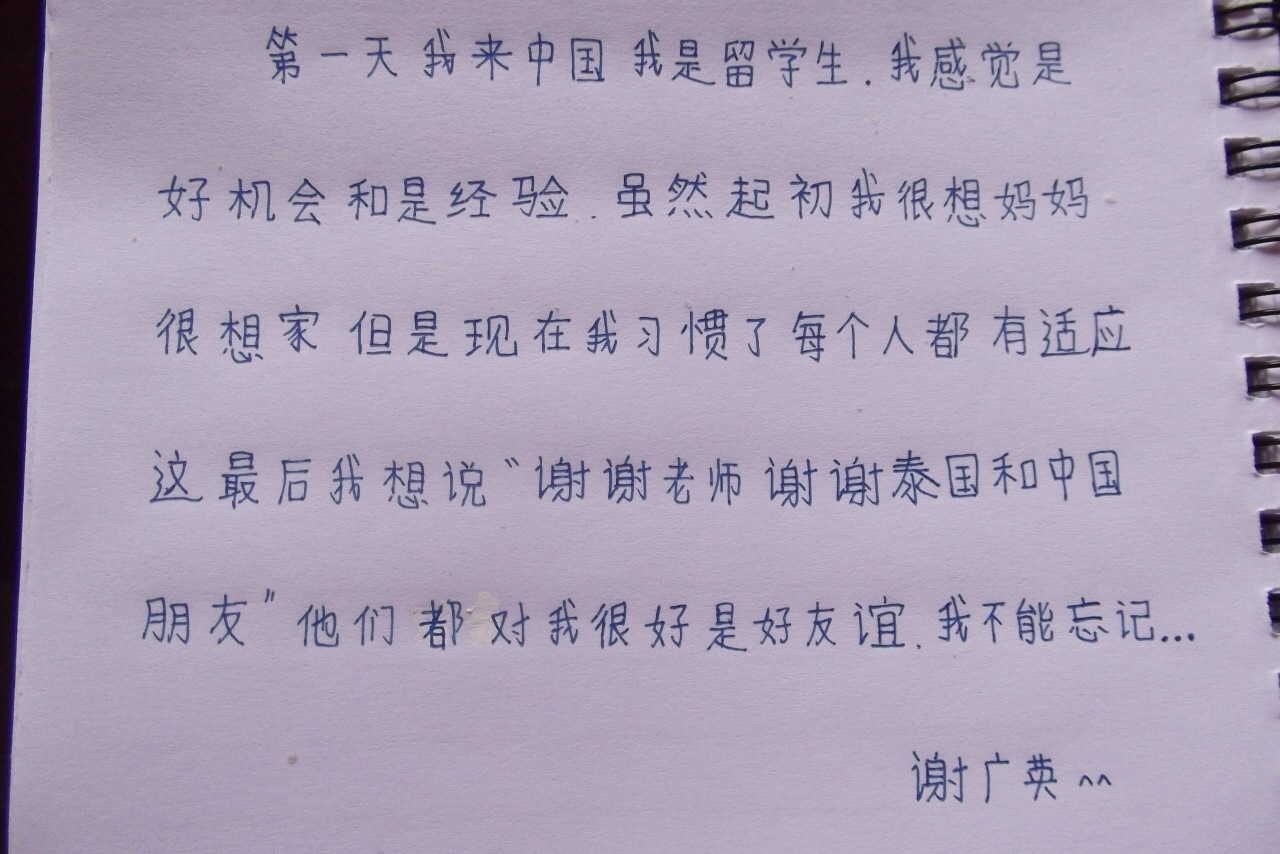 第一天 我来中国 我是留学生. 我感觉是
好机会和是经验. 虽然起初我很想妈妈
很想家 但是现在我习惯了每个人都有适应
这最后我想说“谢谢老师 谢谢泰国和中国
朋友” 他们都对我很好是好友谊. 我不能忘记...
谢广英 ^^